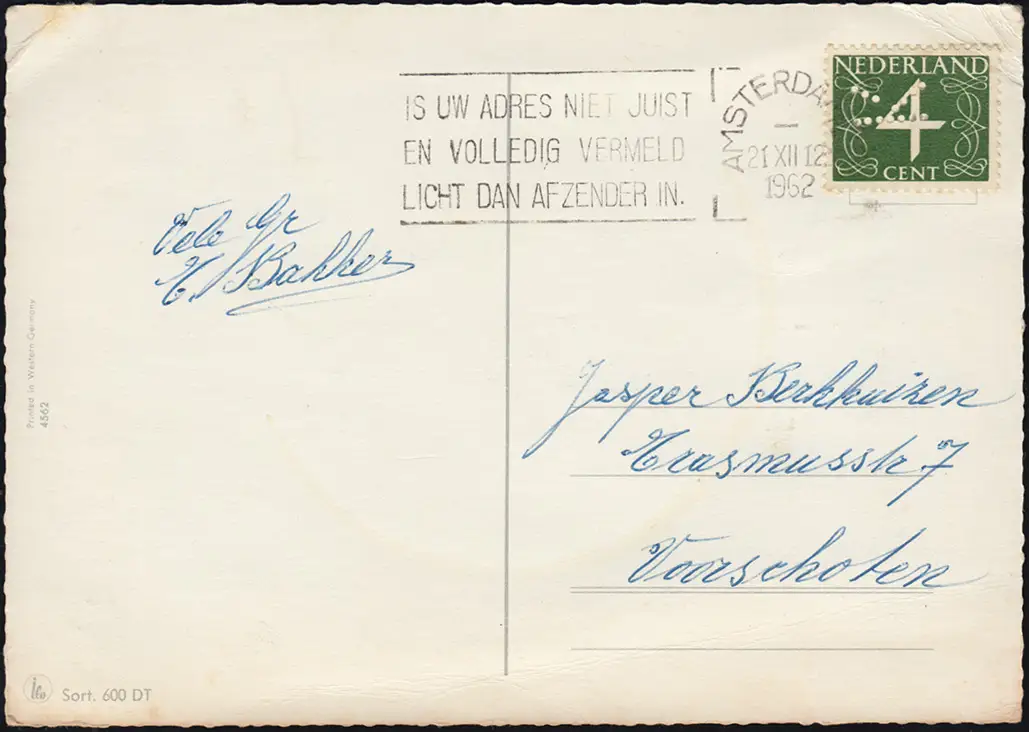 IS UW ADRES NIET JUIST
EN VOLLEDIG VERMELD
LICHT DAN AFZENDER IN.
AMSTERDAM
21 XII 12
1962
NEDERLAND
4
CENT
Vele Gr
E. Bakker
Jasper Berkhuizen
Erasmusstr 7
Voorschoten
Printed in Western Germany
4562
Sort. 600 DT